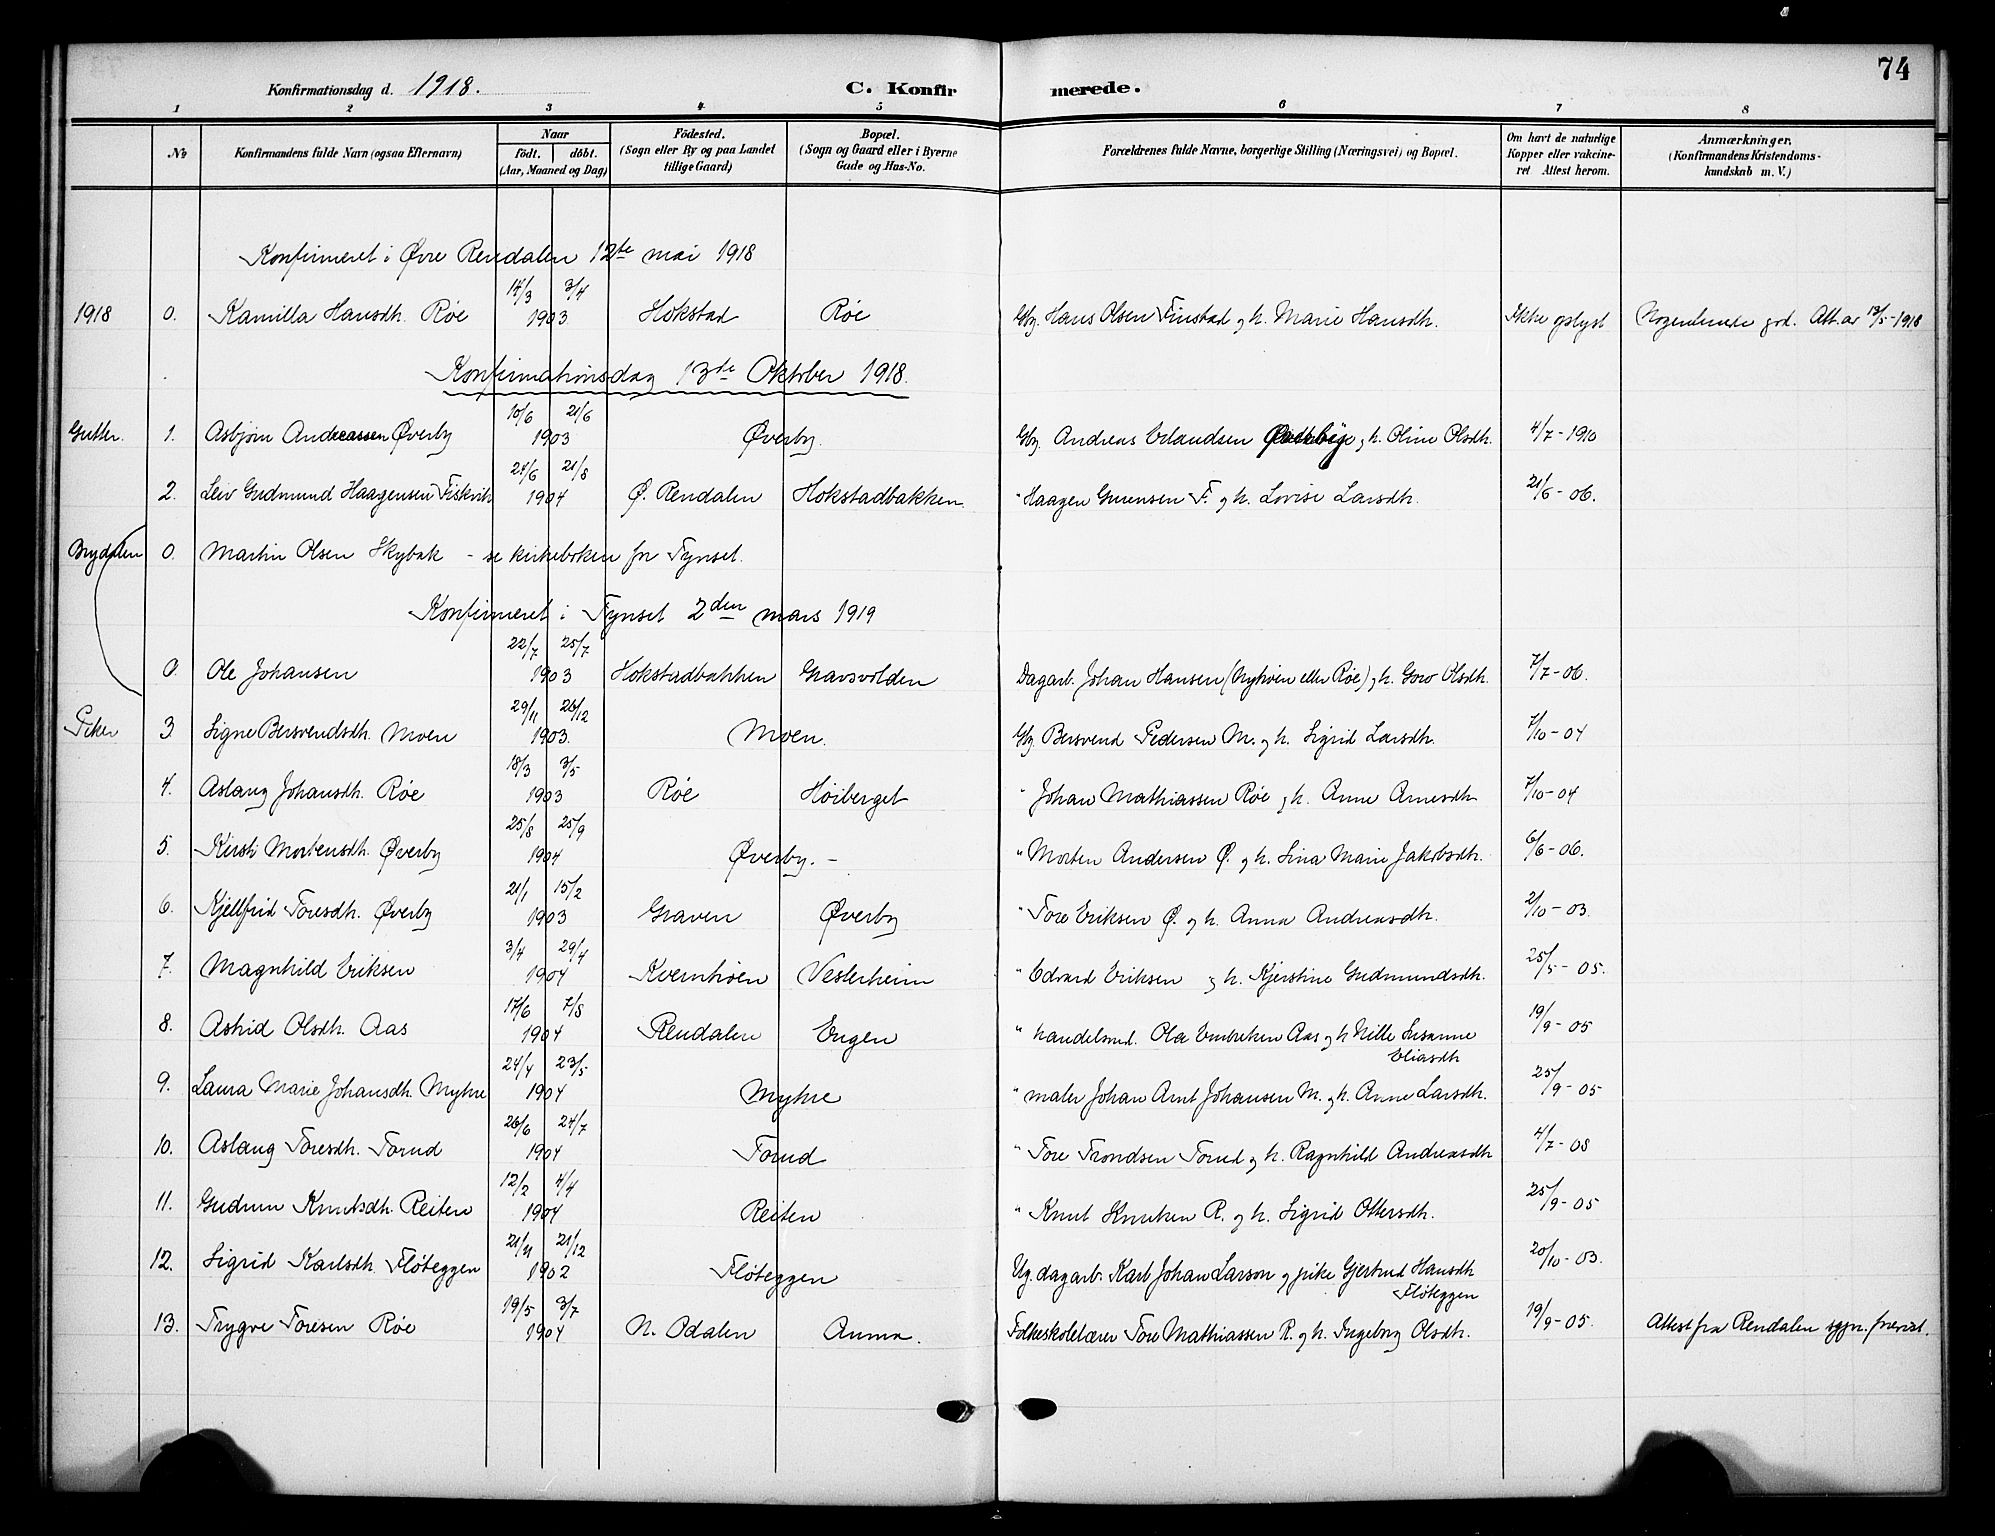 74
Konfirmationsdag d. 1918. C. Konfirmerede.
1 2 3 4 5 6 7 8
No Konfirmandens fulde Navn (ogsaa Efternavn) Naar födt. döbt. (Aar, Maaned og Dag) Födested. (Sogn eller By og paa Landet tillige Gaard) Bopæl. (Sogn og Gaard eller i Byerne Gade og Hus-No. Forældrenes fulde Navne, borgerlige Stilling (Næringsvei) og Bopæl. Om havt de naturlige Kopper eller vakcineret Attest herom. Anmærkninger, (Konfirmandens Kristendomskundskab m. V.)
Konfirmeret i Øvre Rendalen 12te mai 1918
1918 0. Kamilla Hansdh. Røe 14/3 3/4 1903 Hokstad Røe Gbr. Hans Olsen Finstad og h. Marie Hansdh. Ikke oplyst Nogenlunde god. Att. av 13/5-1918
Konfirmationsdag 13de Oktober 1918.
Gutter. 1. Asbjørn Andreassen Øverby 10/6 21/6 1903 Øverby. Gbr. Andreas Erlandsen og h. Oline Olsdh. 4/7-1910
2. Leiv Gudmund Haagensen Fiskvik 24/6 21/8 1904 Ø. Rendalen Hokstadbakken " Haagen F. og h. Lovise Larsdh. 21/6-06.
Brydalen 0. Martin Olsen Skybak - se kirkeboken for Tynset.
Konfirmeret i Tynset 2den mars 1919
0. Ole Johansen 22/7 25/7 1903 Hokstadbakken Gravsvolden Dagarb. Johan Hansen (Nyhoen eller Røe) og h. Goro Olsdh. 7/7-06.
Piker 3 Signe Bersvendsdh. Moen 29/11 26/12 1903. Moen. Gbr. Bersvend Pedersen M. og h. Sigrid Larsdh. 7/10-04
4. Aslaug Johansdh. Røe 18/3 3/5 1903 Røe Høiberget " Johan Mathiassen Røe og h. Anne Arnesdh 7/10-04
5. Kirsti Mortensdh. Øverby 25/8 25/9 1904 Øverby. - " Morten Andersen Ø. og h. Lina Marie Jakobsdh. 6/6-06.
6. Kjellfrid Toresdh. Øverby 21/1 15/2 1903 Graven Øverby " Tore Eriksen Ø. og h. Anna Andreasdh. 2/10-03.
7. Magnhild Eriksen 3/4 29/4 1904 Kvernhøen Vesterheim " Edvard Eriksen og h. Kjerstine Gudmundsdh. 25/5-05.
8. Astrid Olsdh. Aas 17/6 7/8 1904 Rendalen Engen " handelsmd. Ola Embretsen Aas og h Nille Susanne Eliasdh 19/9-05
9. Laura Marie Johansdh. Myhre 24/4 23/5 1904 Myhre " maler Johan Arnt Johansen M. og h. Anne Larsdh. 25/9-05
10. Aslaug Toresdh. Torud 26/6 24/7 1904 Torud " Tore Trondsen Torud og h. Ragnhild Andreasdh 4/7-08
11. Gudrun Knutsdh. Reiten 12/2 4/4 1904 Reiten " Knut Knutsen R. og h. Sigrid Ottersdh. 25/9-05
12. Sigrid Karlsdh. Fløteggen 21/11 21/12 1902 Fløteggen Ug. dagarb. Karl Johan Larson og pike Gjertrud Hansdh Fløteggen 20/10-03.
13. Trygve Toresen Røe 19/5 3/7 1904 N. Odalen Anna. Folkeskolelærer Tore Mathiassen R. og h. Ingeborg Olsdh. 19/9-05. Attest fra Rendalen sgpr. forevist.